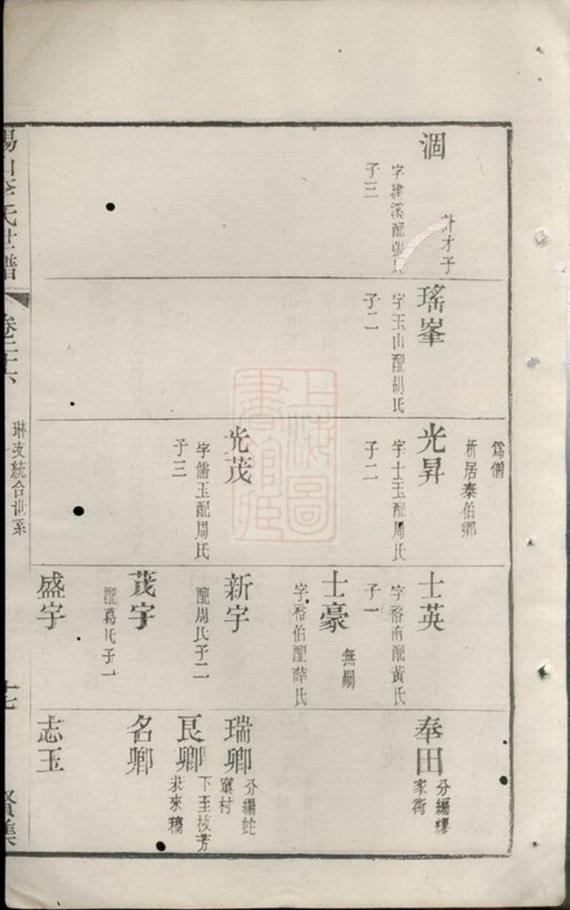 為僧
析居泰伯鄉
涸
計才子
字建溪配張氏
子三
瑤峯
字玉山配胡氏
子二
光昇
字士玉配周氏
子二
光茂
字儒玉配周氏
子三
士英
字裕南配黃氏
子一
士豪
無嗣
字裕伯配薛氏
新宇
配周氏子二
茂宇
配葛氏子一
盛宇
奉田
分編樓
家衖
瑞卿
分編蛇
窠村
艮卿
下至枝芳
未來稿
名卿
志玉
李氏世譜
卷二十六
琳支統合世系
十七
賢集
上海圖書館